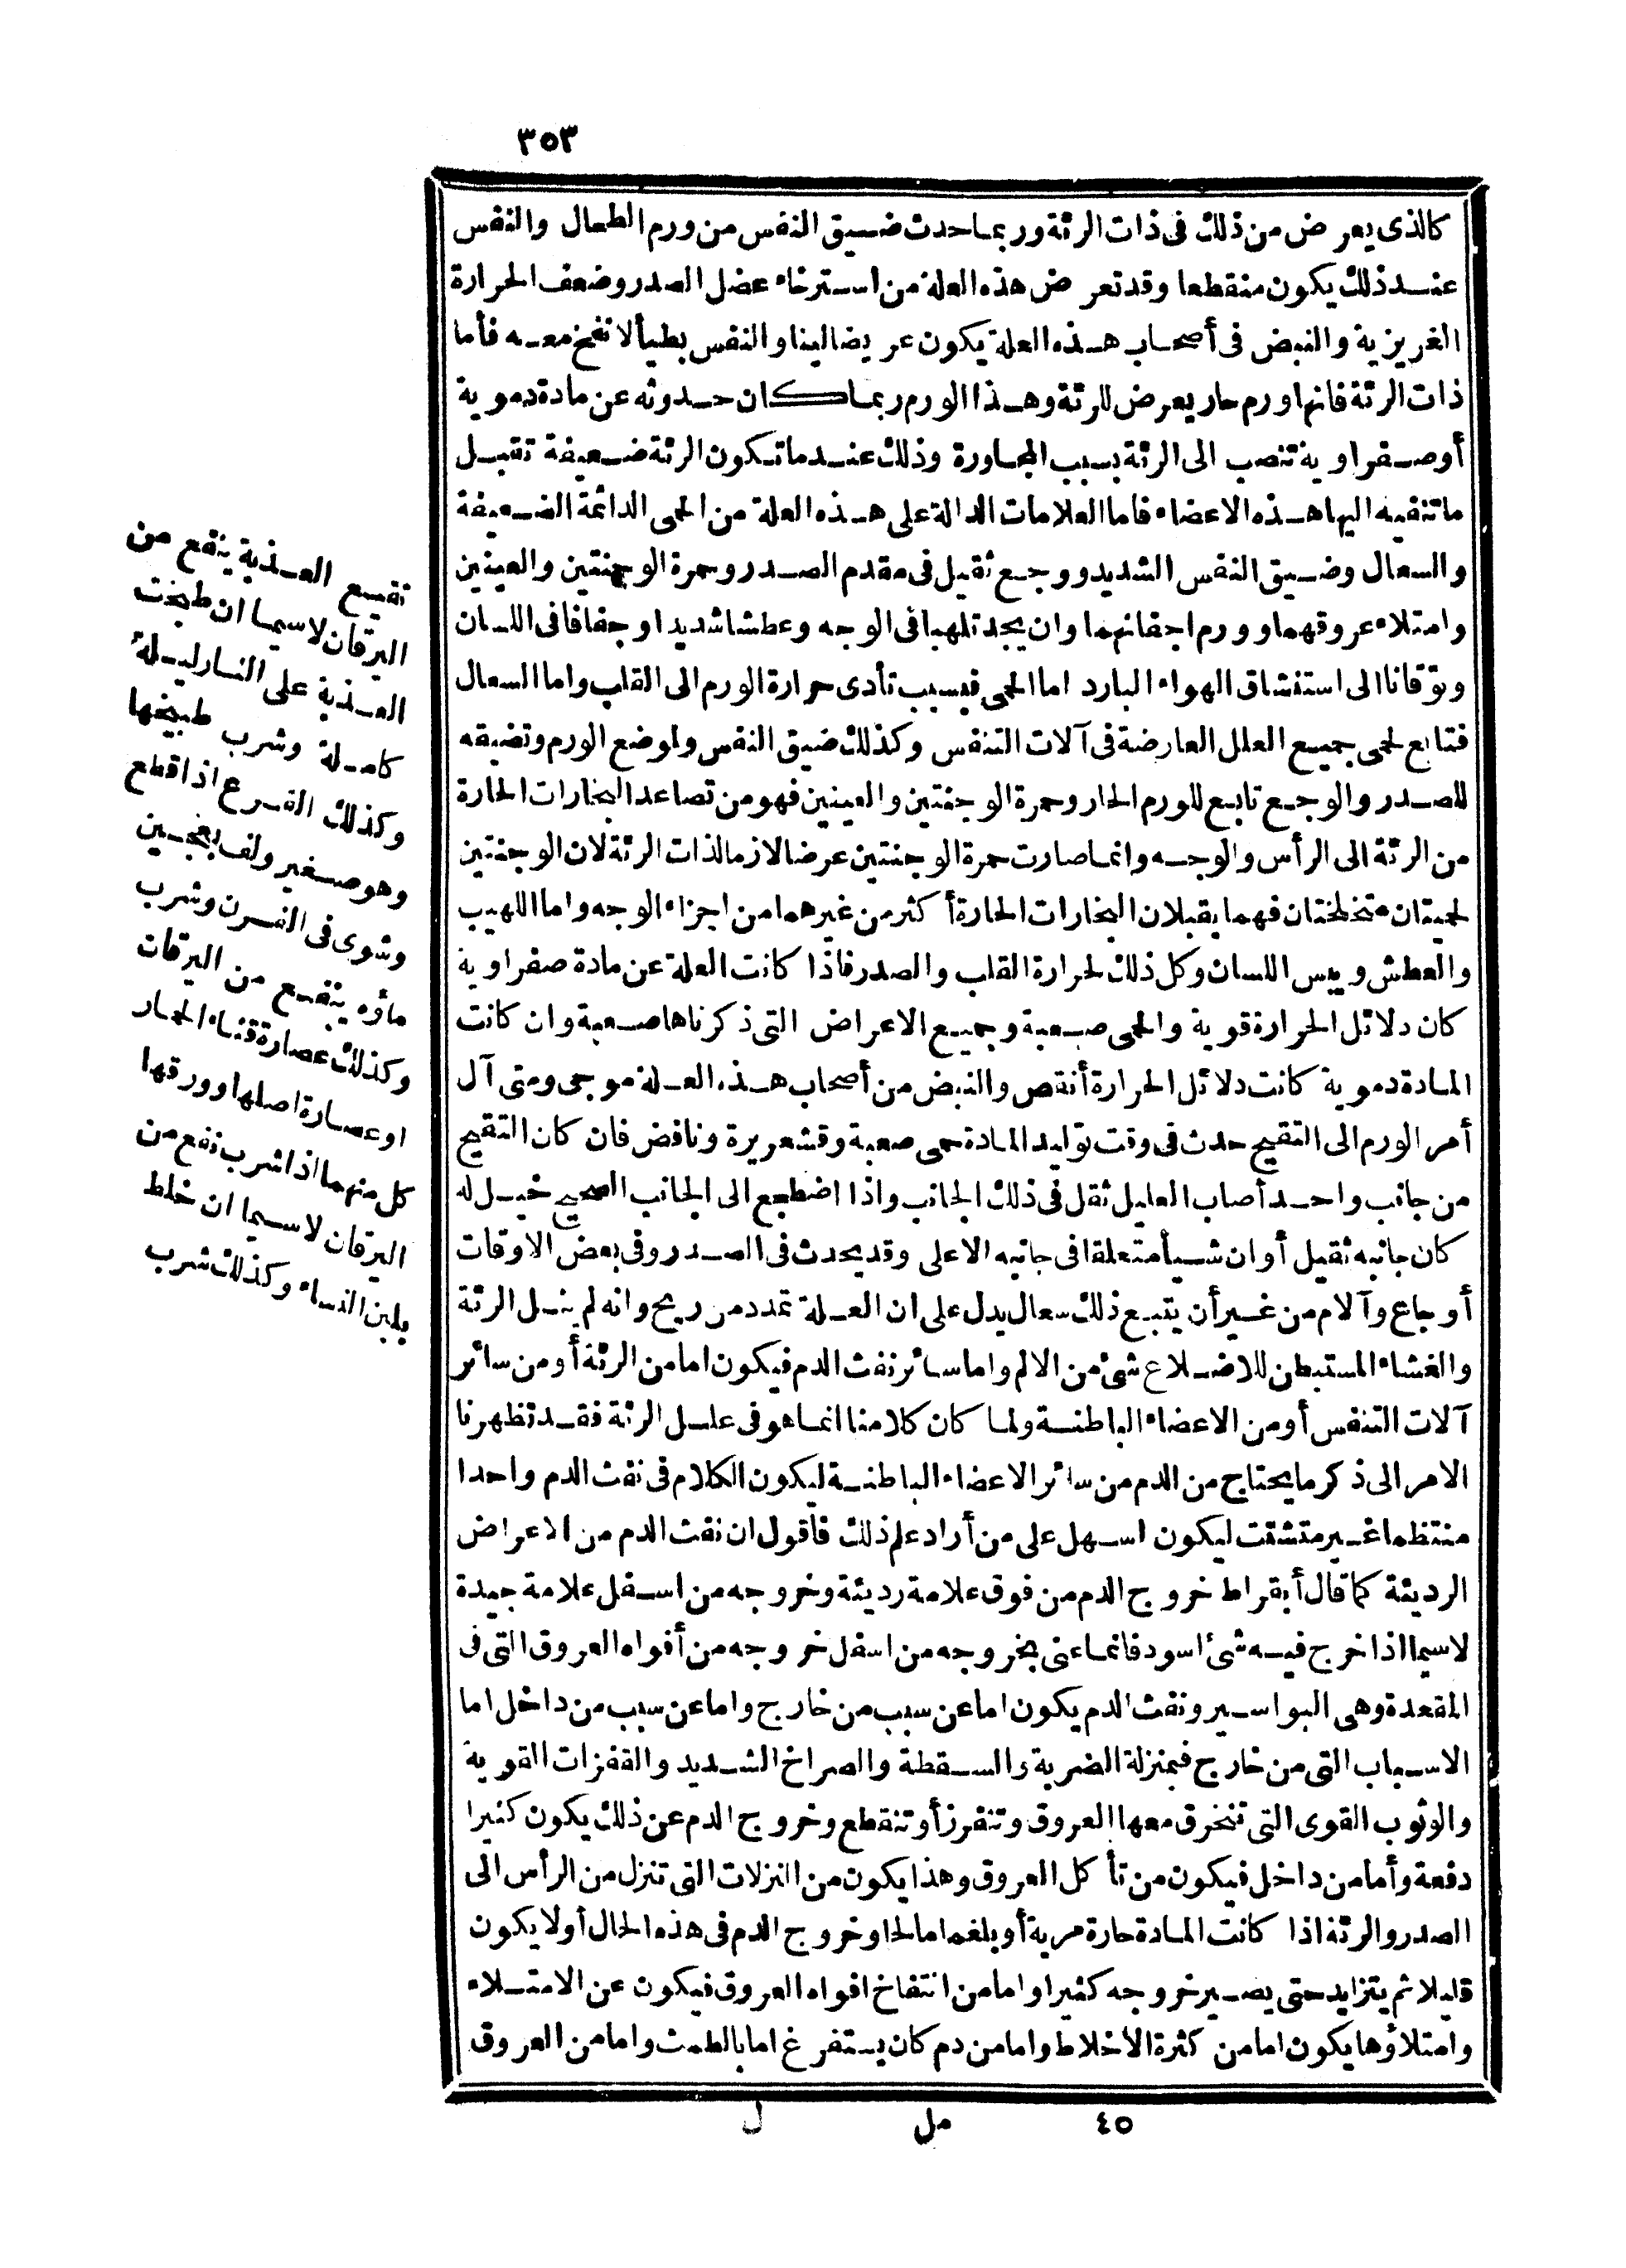 ٣٥٣
كالذى يعرض من ذلك فى ذات الرئة وربما حدث ضيق النفس من ورم الطحال والنفس
عند ذلك يكون منقطعا وقد تعرض هذه العلة من استرخاء عضل الصدر وضعف الحرارة
الغريزية والنبض فى أصحاب هذه العلة يكون عريضا لينا والنفس بطيأ لا نفخ معه فأما
ذات الرئة فانها ورم حار يعرض للرئة وهذا الورم ربما كان حدوثه عن مادة دموية
أو صفراوية تنصب الى الرئة بسبب المجاورة وذلك عندما تكون الرئة ضعيفة تقبل
ما تنفيه اليها هذه الاعضاء فاما العلامات الدالة على هذه العلة من الحمى الدائمة الضعيفة
والسعال وضيق النفس الشديد ووجع ثقيل فى مقدم الصدر وحمرة الوجنتين والعينين
وامتلاء عروقهما وورم اجفانهما وان يجد تلهبا فى الوجه وعطشا شديدا وجفافا فى اللسان
وتوقانا الى استنشاق الهواء البارد اما الحمى فبسبب تأدى حرارة الورم الى القلب واما السعال
فتابع لحمى جميع العلل العارضة فى آلات التنفس وكذلك ضيق النفس ولموضع الورم وتضيقه
للصدر والوجع تابع للورم الحار وحمرة الوجنتين والعينين فهو من تصاعد البخارات الحارة
من الرئة الى الرأس والوجه وانما صارت حمرة الوجنتين عرضا لازما لذات الرئة لان الوجنتين
لحميتان متخلخلتان فهما يقبلان البخارات الحارة أكثر من غيرهما من اجزاء الوجه واما اللهيب
والعطش ويبس اللسان وكل ذلك لحرارة القلب والصدر فاذا كانت العلة عن مادة صفراوية
كان دلائل الحرارة قوية والحمى صعبة وجميع الاعراض التى ذكرناها صعبة وان كانت
المادة دموية كانت دلائل الحرارة أنقص والنبض من أصحاب هذه العلة موجى ومتى آل
أمر الورم الى التقيح حدث فى وقت توليد المادة حمى صعبة وقشعريرة ونافض فان كان التقيح
من جانب واحد أصاب العليل ثقل فى ذلك الجانب واذا اضطجع الى الجانب الصحيح خيل له
كان جانبه ثقيل أو ان شيأ متعلقا فى جانبه الاعلى وقد يحدث فى الصدر وفى بعض الاوقات
أوجاع وآلام من غير أن يتبع ذلك سعال يدل على ان العلة تمدد من ريح وانه لم ينل الرئة
والغشاء المستبطن للاضلاع شئ من الالم واما سائر نفث الدم فيكون اما من الرئة أو من سائر
آلات التنفس أو من الاعضاء الباطنة ولما كان كلامنا انما هو فى علل الرئة فقد تظهرنا
الامر الى ذكر ما يحتاج من الدم من سائر الاعضاء الباطنة ليكون الكلام فى نفث الدم واحدا
منتظما غير متشتت ليكون اسهل على من أراد علم ذلك فاقول ان نفث الدم من الاعراض
الرديئة كما قال أبقراط خروج الدم من فوق علامة رديئة وخروجه من اسفل علامة جيدة
لاسيما اذا خرج فيه شئ اسود فانما عنى بخروجه من اسفل خروجه من أفواه العروق التى فى
المقعدة وهى البواسير ونفث الدم يكون اما عن سبب من خارج واما عن سبب من داخل اما
الاسباب التى من خارج فبمنزلة الضربة والسقطة والصراخ الشديد والقفزات القوية
والوثوب القوى التى تنخرق معها العروق وتنفرز أو تنقطع وخروج الدم عن ذلك يكون كثيرا
دفعة وأما من داخل فيكون من تأكل العروق وهذا يكون من النزلات التى تنزل من الرأس الى
الصدر والرئة اذا كانت المادة حارة مرية أو بلغما مالحا وخروج الدم فى هذه الحال أولا يكون
قليلا ثم يتزايد حتى يصير خروجه كثيرا واما من انتفاخ افواه العروق فيكون عن الامتلاء
وامتلاؤها يكون اما من كثرة الأخلاط واما من دم كان يستفرغ اما بالطمث واما من العروق
٤٥ مل ل
نقيع العذبة ينفع من
اليرقان لاسيما ان طبخت
العذبة على النار ليلة
كاملة وشرب طبيخها
وكذلك القرع اذا قطع
وهو صغير ولف بعجين
وشوى فى الفرن وشرب
ماؤه ينفع من اليرقان
وكذلك عصارة قثاء الحمار
او عصارة اصلها وورقها
كل منهما اذا شرب نفع من
اليرقان لاسيما ان خلط
بلبن النساء وكذلك شرب